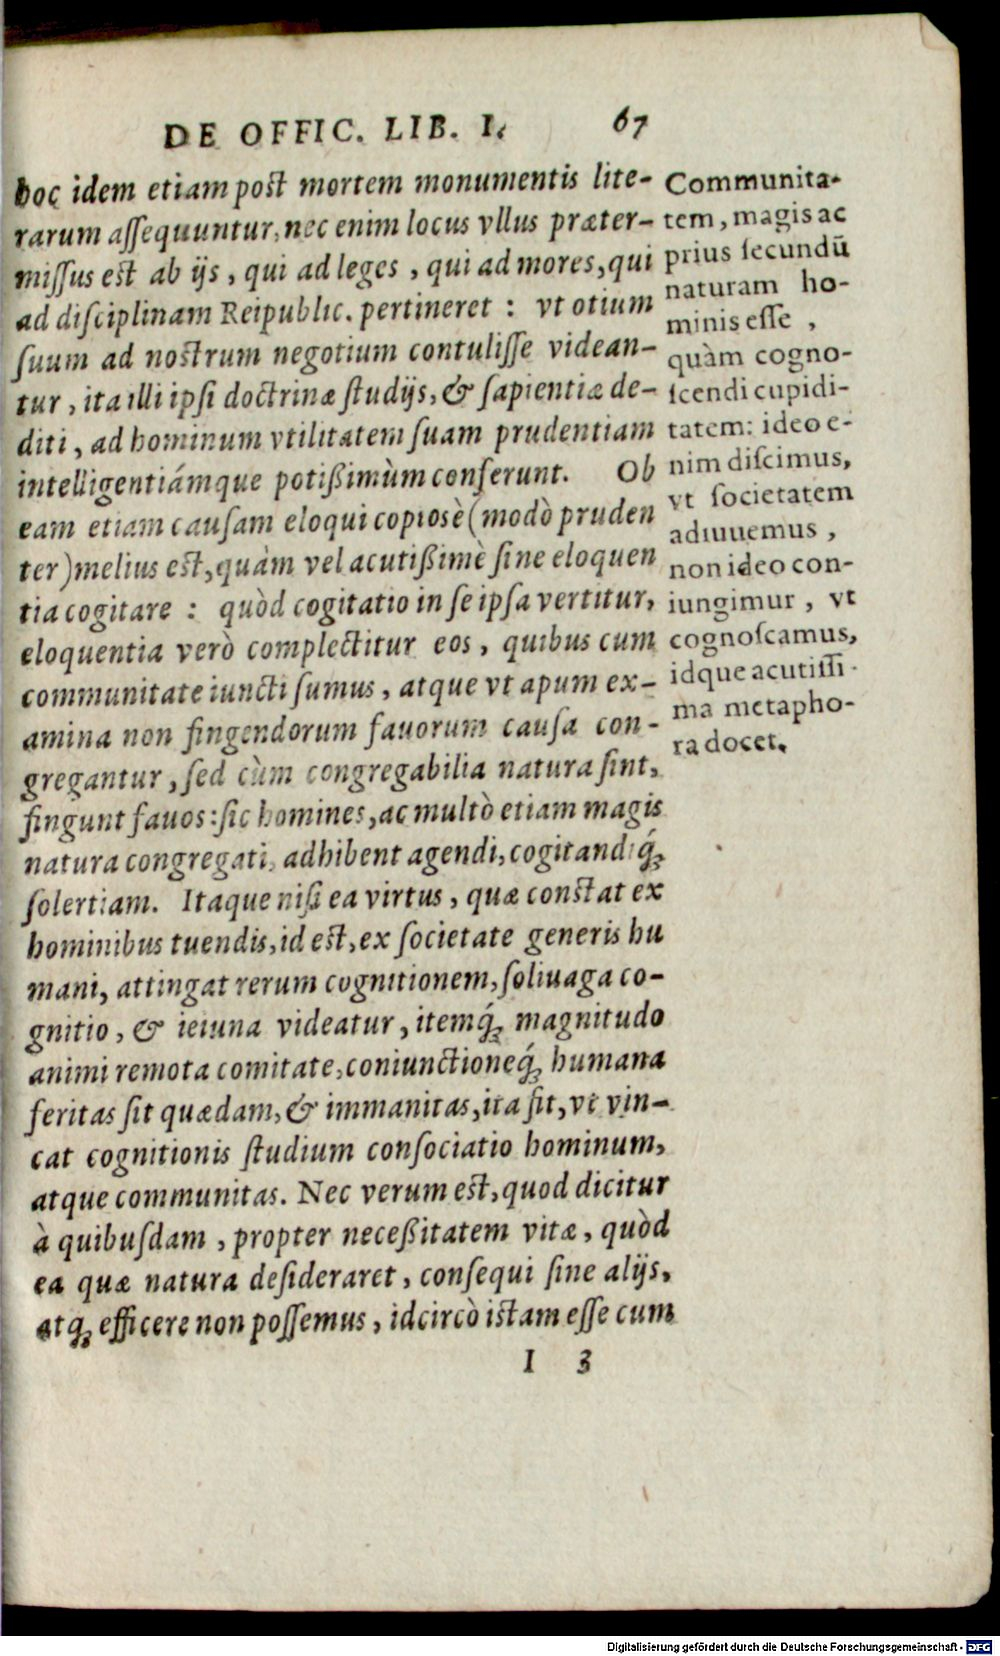 DE OFFIC. LIB. I. 67
hoc idem etiam post mortem monumentis lite-
rarum assequuntur, nec enim locus vllus præter-
missus est ab ijs, qui ad leges, qui ad mores, qui
ad disciplinam Reipublic. pertineret : vt otium
suum ad nostrum negotium contulisse videan-
tur, ita illi ipsi doctrinæ studijs, & sapientiæ de-
diti, ad hominum vtilitatem suam prudentiam
intelligentiámque potißimùm conferunt. Ob
eam etiam causam eloqui copiosè (modò pruden
ter) melius est, quàm vel acutißimè sine eloquen
tia cogitare : quòd cogitatio in se ipsa vertitur,
eloquentia verò complectitur eos, quibus cum
communitate iuncti sumus, atque vt apum ex-
amina non fingendorum fauorum causa con-
gregantur, sed cùm congregabilia natura sint,
fingunt fauos: sic homines, ac multò etiam magis
natura congregati, adhibent agendi, cogitandiq́;
solertiam. Itaque nisi ea virtus, quæ constat ex
hominibus tuendis, id est, ex societate generis hu
mani, attingat rerum cognitionem, soliuaga co-
gnitio, & ieiuna videatur, itemq́; magnitudo
animi remota comitate, coniunctioneq́; humana
feritas sit quædam, & immanitas, ita fit, vt vin-
cat cognitionis studium consociatio hominum,
atque communitas. Nec verum est, quod dicitur
à quibusdam, propter neceßitatem vitæ, quòd
ea quæ natura desideraret, consequi sine alijs,
atq; efficere non possemus, idcircò istam esse cum
I 3
Communita-
tem, magis ac
prius secundũ
naturam ho-
minis esse ,
quàm cogno-
scendi cupidi-
tatem: ideo e-
nim discimus,
vt societatem
adiuuemus ,
non ideo con-
iungimur , vt
cognoscamus,
idque acutissi-
ma metapho-
ra docet.
Digitalisierung gefördert durch die Deutsche Forschungsgemeinschaft - DFG